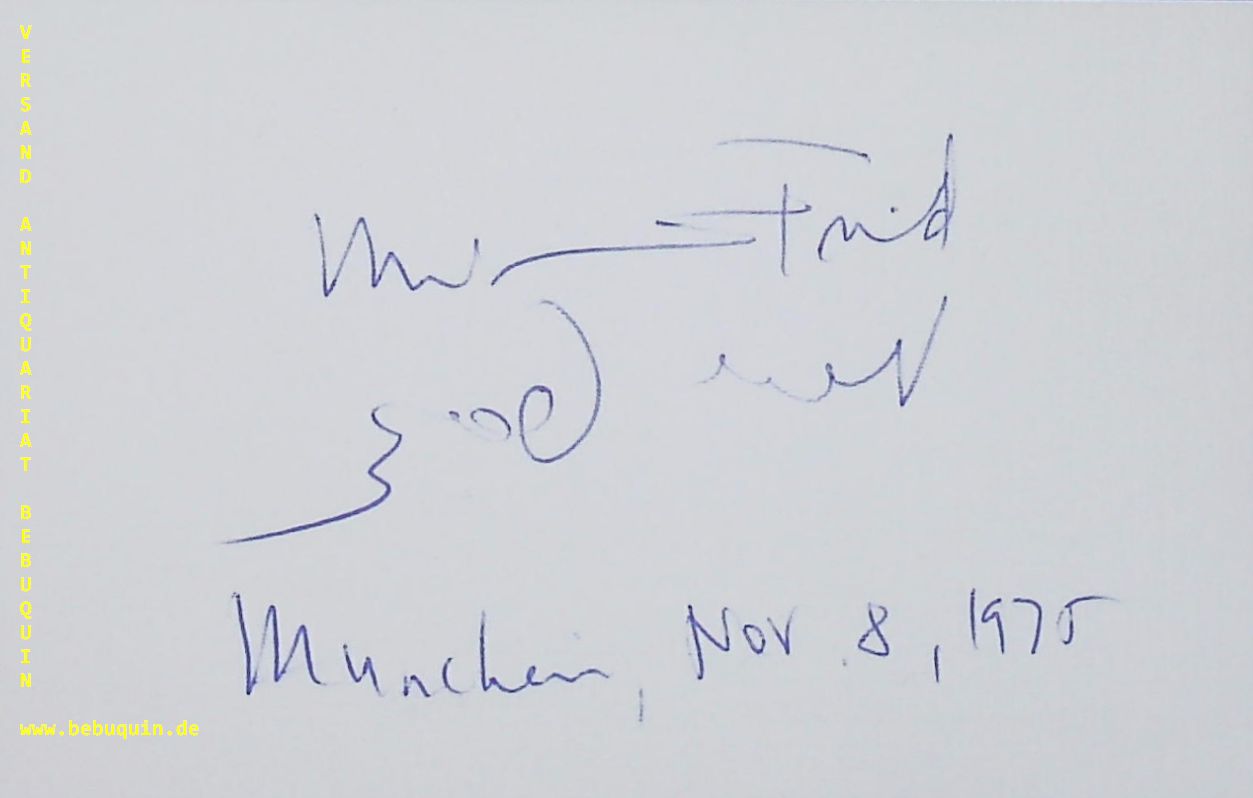 VERSAND ANTIQUARIAT BEBUQUIN
Miriam Fried
Munchen, Nov. 8, 1975
www.bebuquin.de